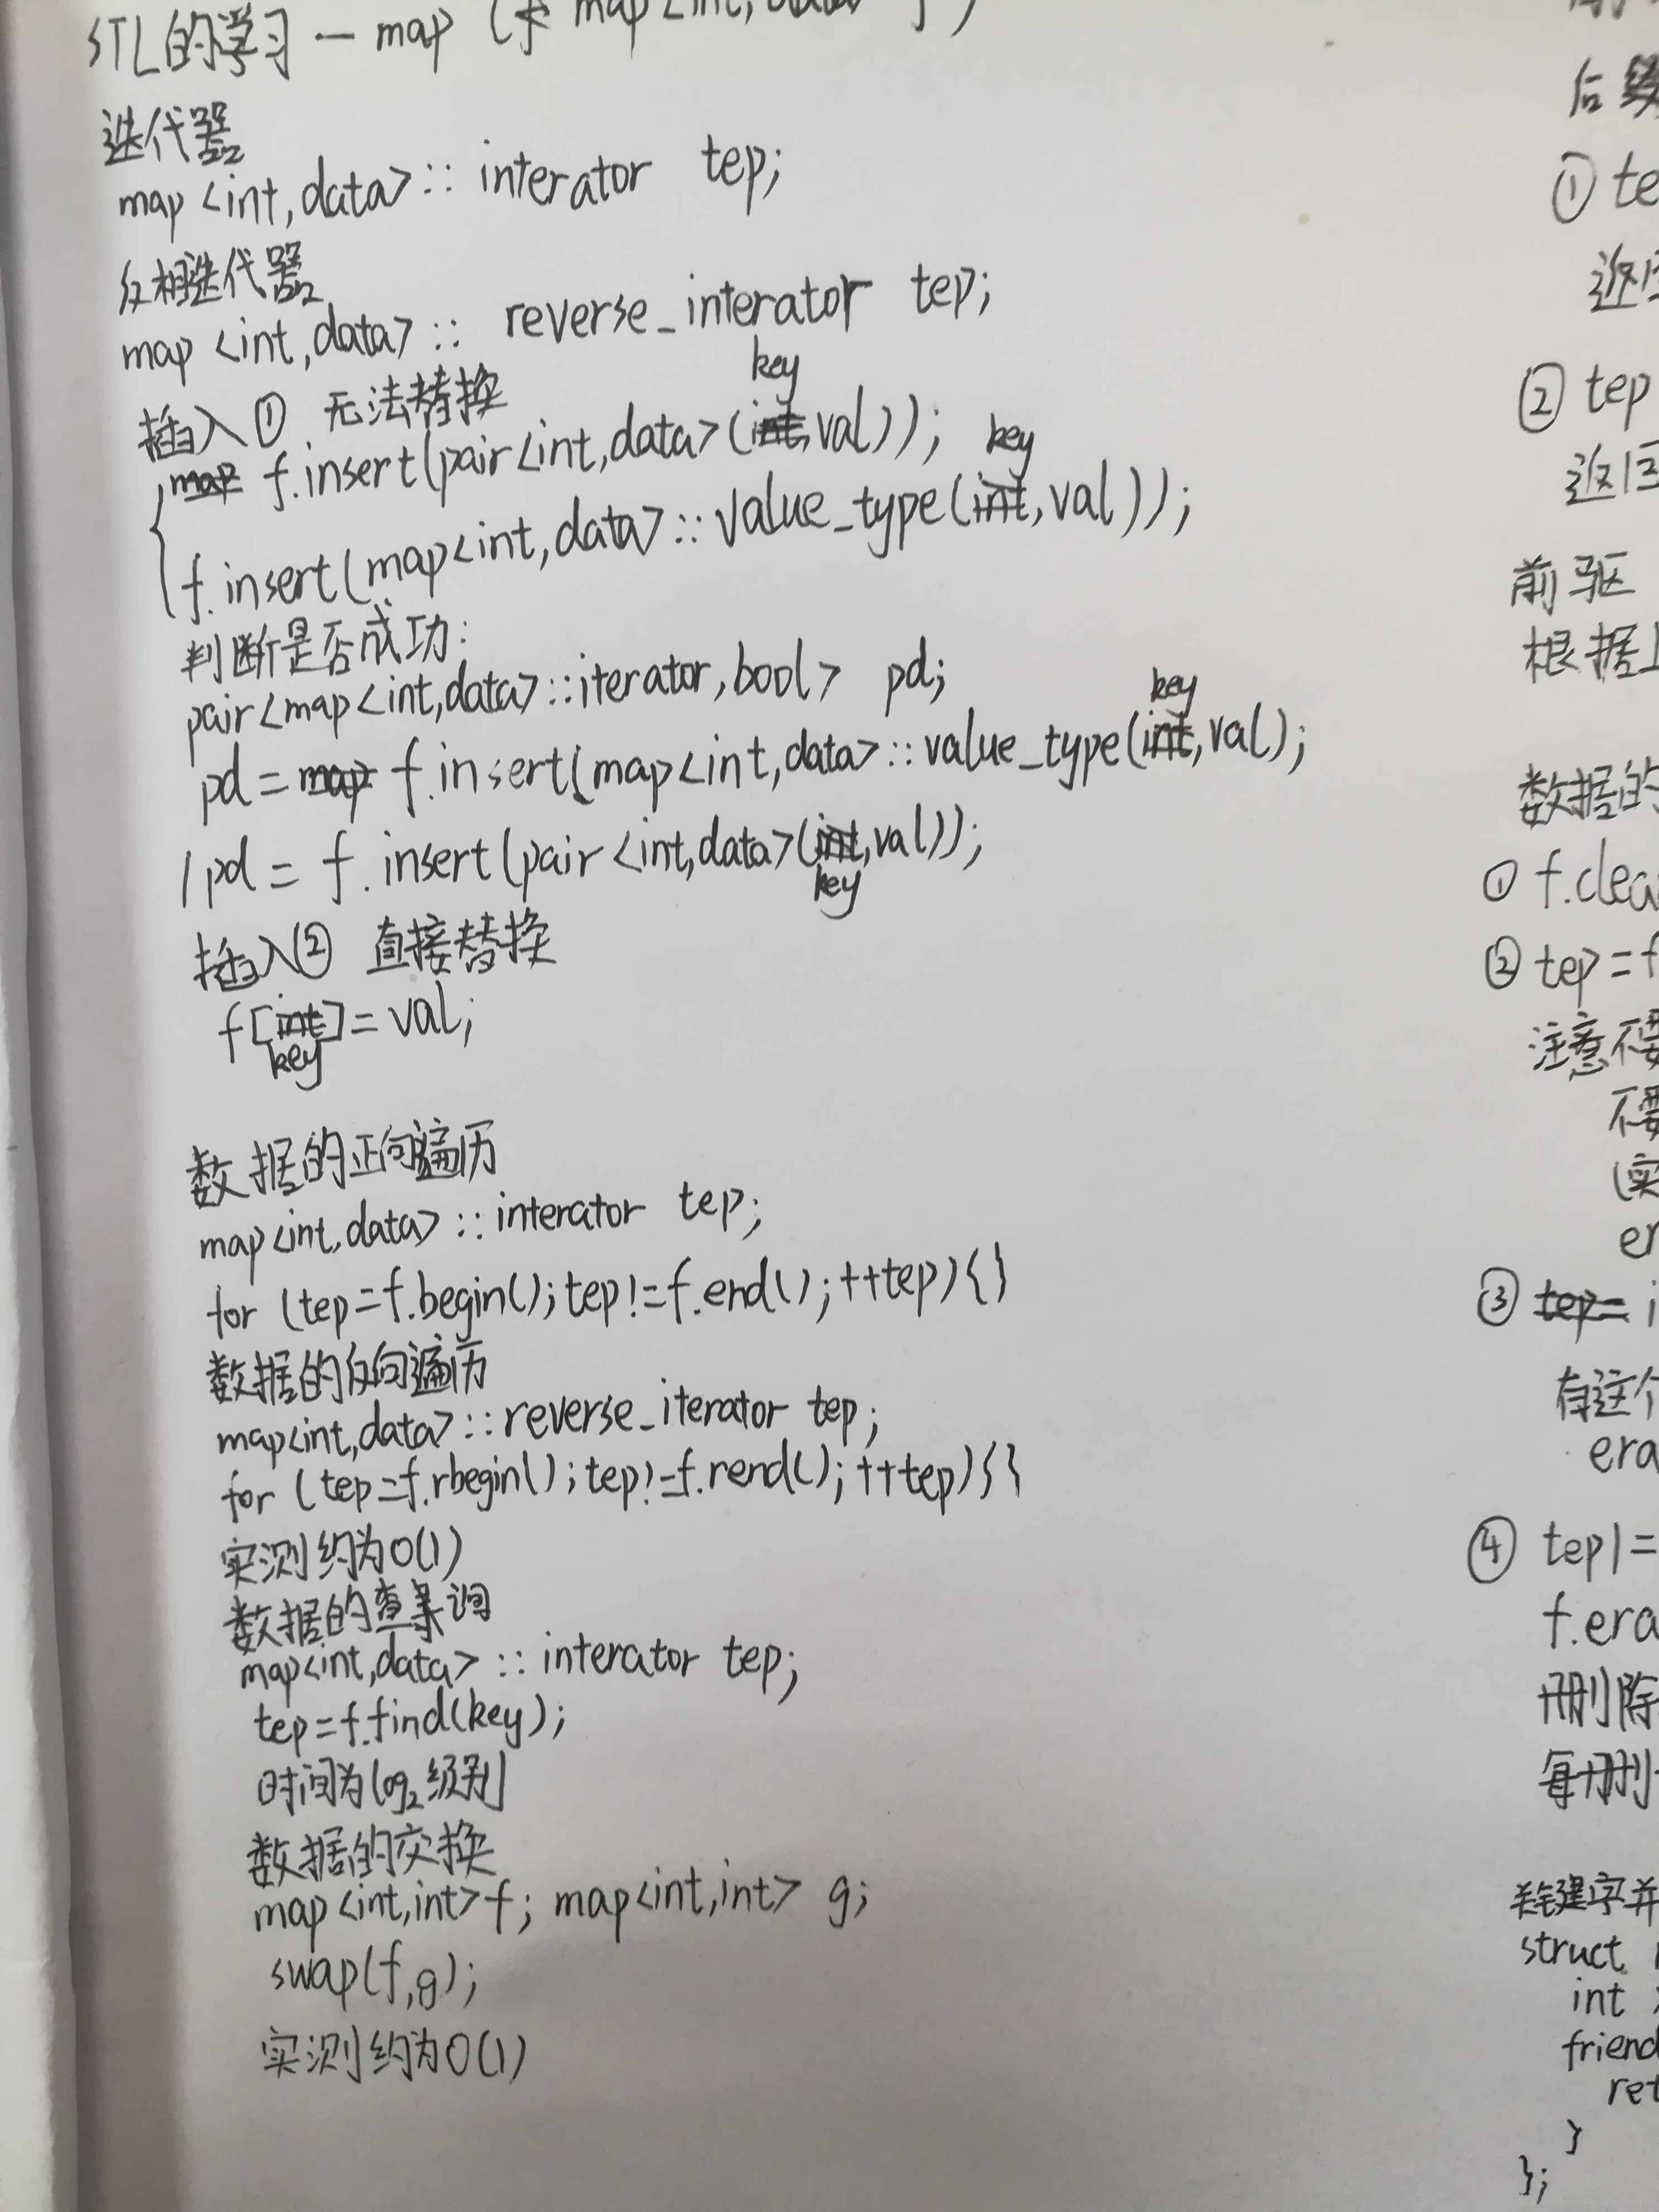 STL的学习 — map
迭代器
map<int,data>:: interator tep;
反相迭代器
map <int,data>:: reverse_interator tep;
插入① 无法替换
key
f.insert(pair<int,data>(int,val));
key
f.insert(map<int,data>::value_type(int,val));
判断是否成功:
pair<map<int,data>::iterator,bool> pd;
key
pd=map f.insert(map<int,data>::value_type(int,val);
/pd = f.insert(pair<int,data>(int,val));
key
插入② 直接替换
f[int]=val;
key
数据的正向遍历
map<int,data>::interator tep;
for (tep=f.begin();tep!=f.end();++tep){}
数据的反向遍历
map<int,data>::reverse_iterator tep;
for (tep=f.rbegin();tep!=f.rend();++tep){}
实测约为O(1)
数据的查询
map<int,data>:: interator tep;
tep=f.find(key);
时间为log2级别
数据的交换
map<int,int>f; map<int,int> g;
swap(f,g);
实测约为O(1)
后
① te
返回
② tep
返回
前驱
根据
数据的
① f.clea
② tep=f
注意不要
不要
(实
er
③ tep= i
有这个
era
④ tep1=
f.era
删除
每删
关键字并
struct
int
friend
ret
}
};